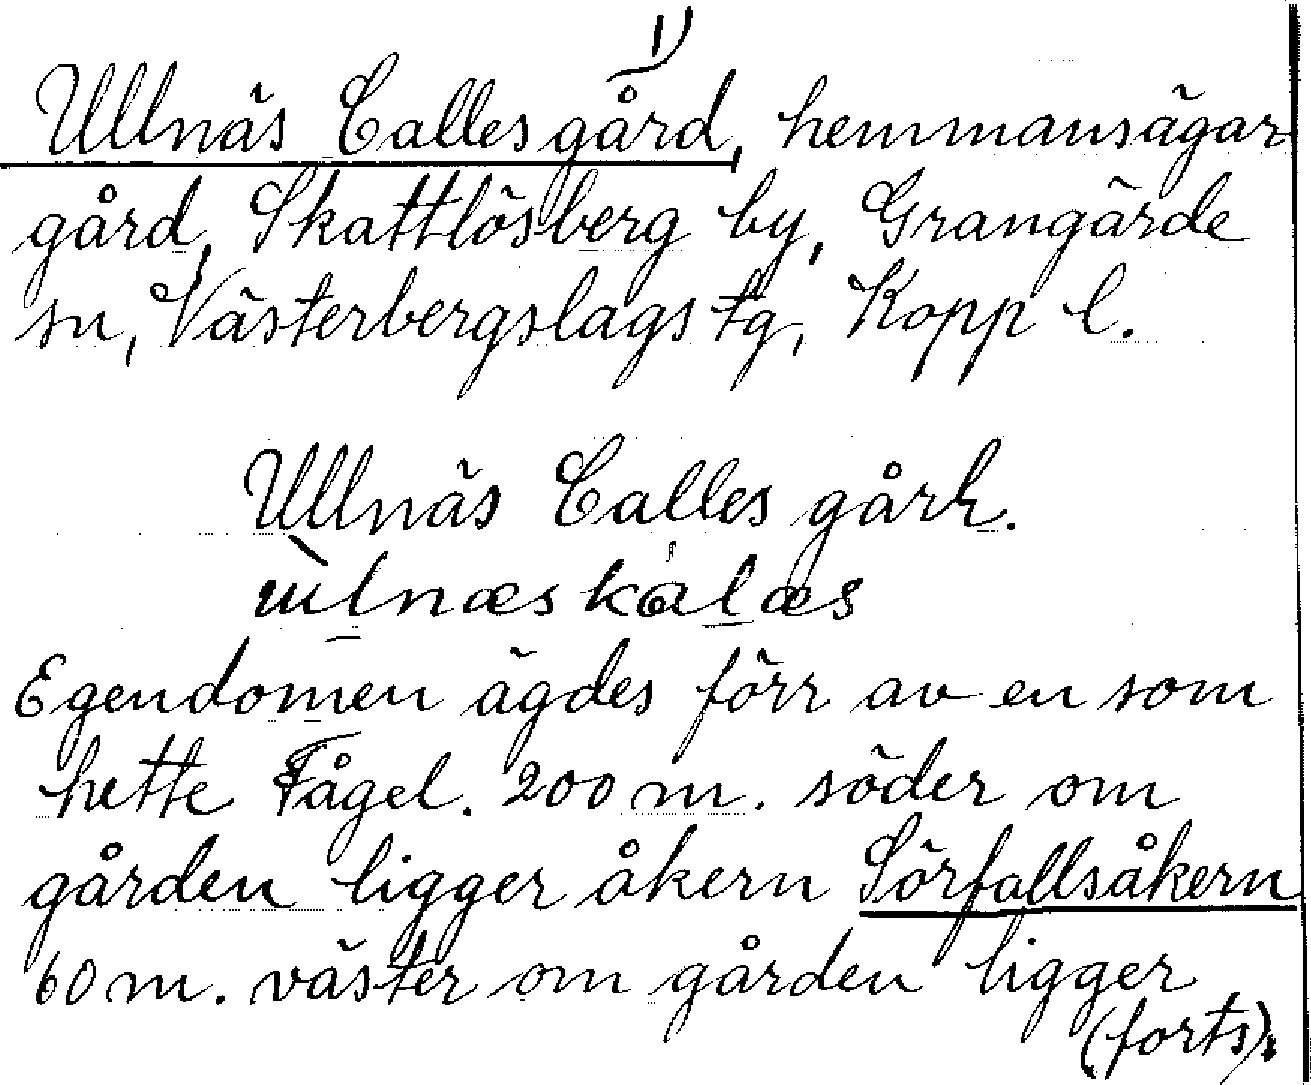 1)
Ullnäs Calles gård, hemmansägar
gård, Skattlösberg by, Grangärde
sn, Västerbergslags tg, Kopp l.
Ullnäs Calles gård.
Egendomen ägdes förr av en som
hette Fågel. 200 m. söder om
gården ligger åkern Sörfallsåkern
60 m. väster om gården ligger
(forts).